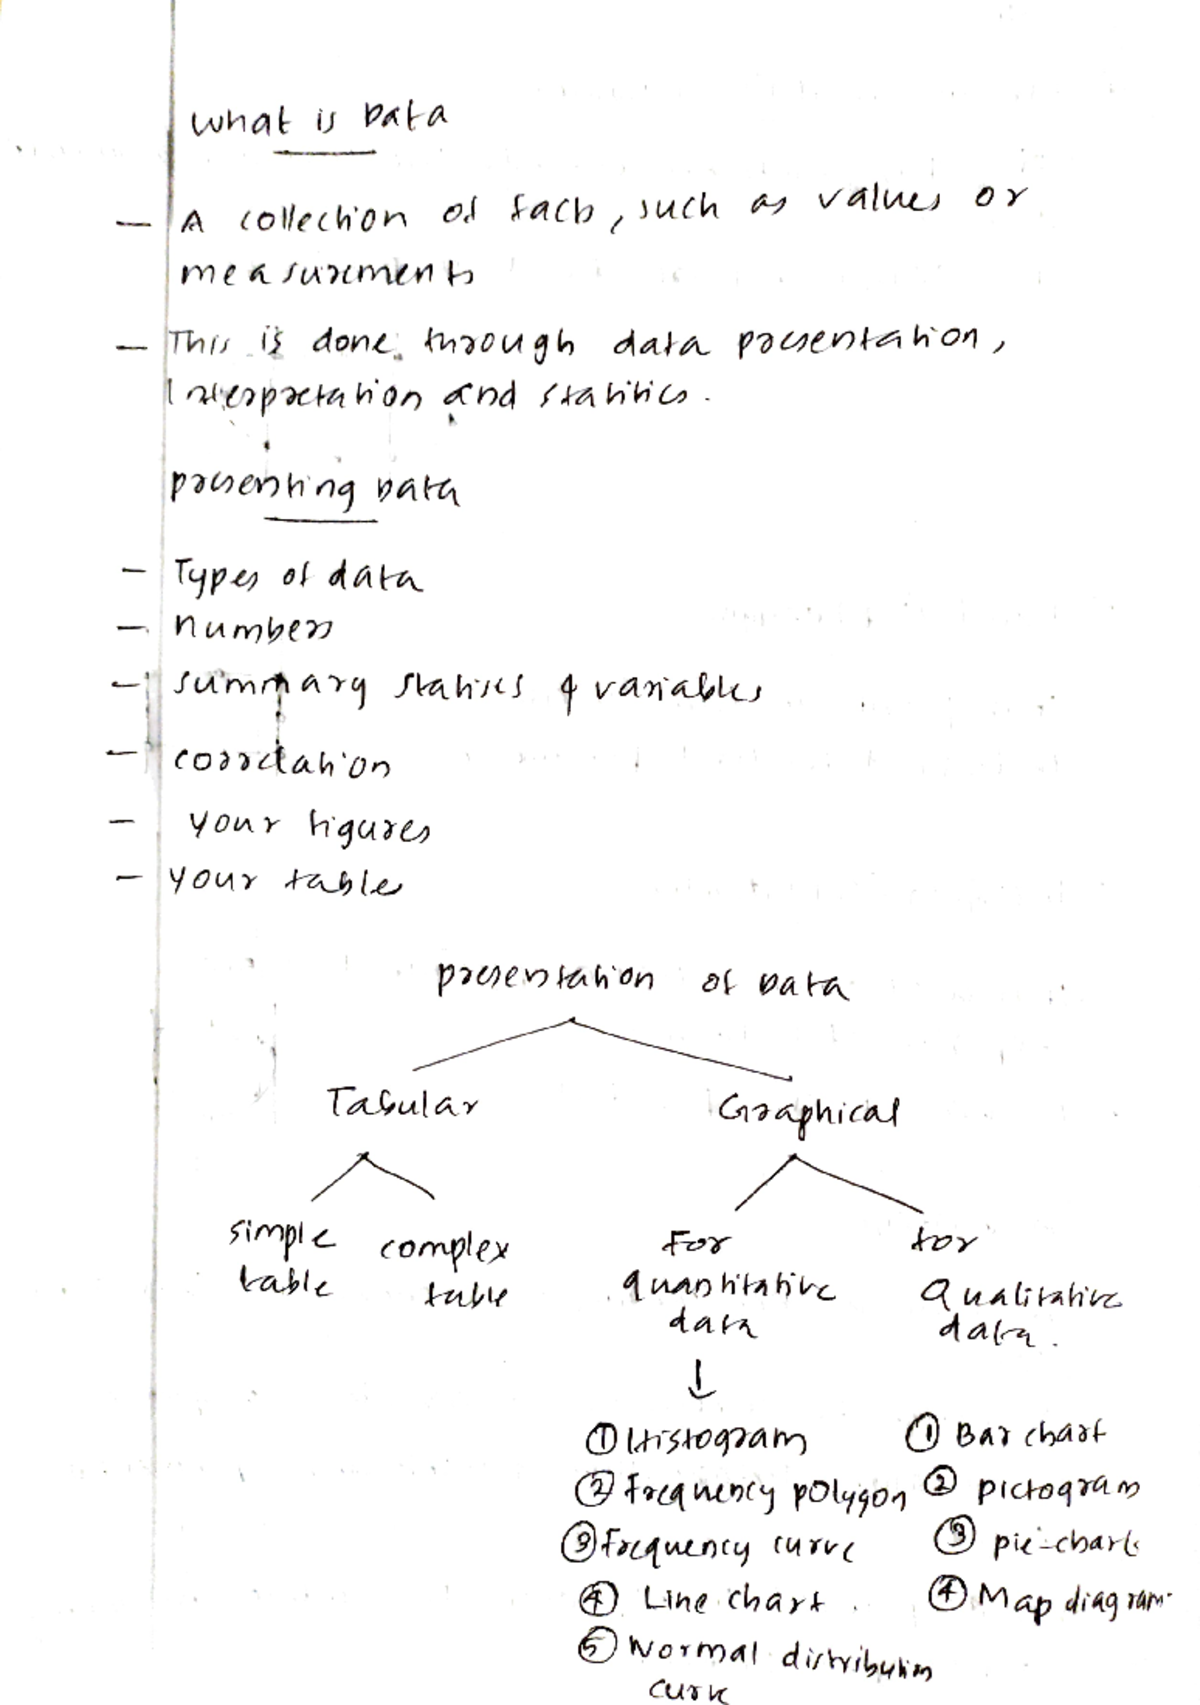 What is Data
— A collection of facts, such as values or
measurements
— This is done through data presentation,
Interpretation and statitics.
presenting Data
— Types of data
— numbers
— summary statiscs & variables
— correlation
— your figures
— your table
presentation of Data
Tabular Graphical
simple table complex table For quantitative data for Qualitative data.
↓
① Histogram ① Bar chart
② Frequency polygon ② pictogram
③ Frequency curve ③ pie-chart
④ Line chart. ④ Map diagram
⑤ Normal distribution
curve